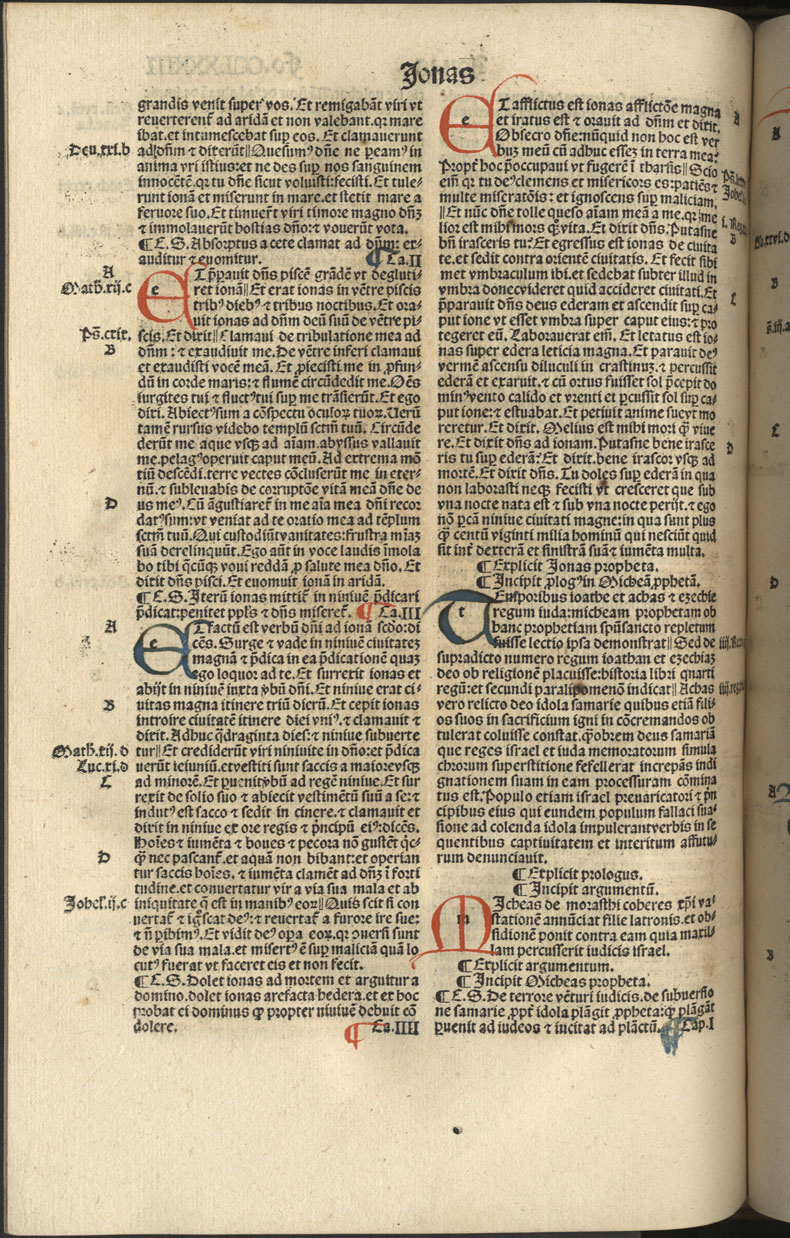 Jonas
grandis venit super vos. Et remigabāt viri vt
reverterenť ad aridā et non valebant. qꝛ mare
ibat. et intumescebat suꝑ eos. Et clamauerunt
Deu.xxi.b
ad dn̄m ⁊ dixerūt ‖ Quesumꝰ dn̄e ne ꝑeamꝰ in
anima viri istius: et ne des suꝑ nos sanguinem
innocētē. qꝛ tu dn̄e sicut voluisti: fecisti. Et tule-
runt ionā et miserunt in mare. et stetit mare a
feruore suo. Et timuerūt viri timore magno dn̄ꝫ
⁊ immolauerūt hostias dn̄o: ⁊ vouerūt vota.
¶ C. S. Absorptus a cete clamat ad dn̄um: ex-
auditur ⁊ euomitur. ¶ Ca.II
A
Et p̄parauit dn̄s piscē grādē vt degluti-
Math.xij.c
ret ionā ‖ Et erat ionas in vētre piscis
tribꝰ diebꝰ ⁊ tribus noctibus. Et ora-
uit ionas ad dn̄m deū suū de vētre pi-
Ps̄.cxix.
scis. Et dixit ‖ Clamaui de tribulatione mea ad
B
dn̄m: ⁊ exaudiuit me. De vētre inferi clamaui
et exaudisti vocē meā. Et ꝓiecisti me in ꝓfun-
dū in corde maris: ⁊ flumē circūdedit me. Oēs
iurgites tui ⁊ fluctꝰ tui suꝑ me trāsierūt. Et ego
dixi. Abiectꝰ sum a cōspectu oculoꝝ tuoꝝ. Uerū
tamē rursus videbo templū sctm̄ tuū. Circūde
derūt me aque vsqꝫ ad aīam. abyssus vallauit
me. pelagꝰ operuit caput meū. Ad extrema mō
tiū descēdi. terre vectes cōcluserūt me in eter-
nū. ⁊ subleuabis de corruptōe vitā meā dn̄e de
D
us meꝰ. Cū āgustiareť in me aīa mea dn̄i recor
datꝰ sum: vt veniat ad te oratio mea ad tēplum
sctm̄ tuū. Qui custodiūt vanitates: frustra mīaꝫ
suā derelinquūt. Ego aūt in voce laudis īmola
bo tibi q̄cūqꝫ voui reddā ꝓ salute mea dn̄o. Et
dixit dn̄s pisci. Et euomuit ionā in aridā.
¶ C. S. Iterū ionas mittiť in niniuē p̄dicari
p̄dicat: penitet ppl̄s ⁊ dn̄s misereť. ¶ Ca.III
A
Et factū est verbū dn̄i ad ionā scd̄o: di
cēs. Surge ⁊ vade in niniuē ciuitateꝫ
magnā ⁊ p̄dica in ea p̄dicationē quaꝫ
ego loquor ad te. Et surrexit ionas et
abijt in niniuē iuxta ꝟbū dn̄i. Et niniue erat ci-
B
uitas magna itinere triū dierū. Et cepit ionas
introire ciuitatē itinere diei vniꝰ. ⁊ clamauit ⁊
dixit. Adhuc q̄draginta dies: ⁊ niniue subuerte
Math.xij.d
tur ‖ Et crediderūt viri niniuite in dn̄o: et p̄dica
Luc.xi.d
uerūt ieiuniū. et vestiti sunt saccis a maiore vsqꝫ
C
ad minorē. Et ꝑuenit ꝟbū ad regē niniue. Et sur
rexit de solio suo ⁊ abiecit vestimētū suū a se: ⁊
indutꝰ est sacco ⁊ sedit in cinere. ⁊ clamauit et
dixit in niniue ex ore regis ⁊ p̄ncipū eiꝰ: dicēs.
Hoīes ⁊ iumēta ⁊ boues ⁊ pecora nō gustēt q̄c-
D
q̄ꝫ nec pascanť. et aquā non bibant: et operian
tur saccis hoīes. ⁊ iumēta clamēt ad dn̄ꝫ ī forti
tudine. et conuertatur vir a via sua mala. et ab
Johel.ij.c
iniquitate q̄ est in manibꝰ eoꝝ ‖ Quis scit si con
uertať ⁊ igscat deꝰ: ⁊ reuertať a furore ire sue:
⁊ n̄ ꝑibimꝰ. Et vidit deꝰ oꝑa eoꝝ. qꝛ ꝯuersi sunt
de via sua mala. et misertꝰ ē suꝑ maliciā quā lo
cutꝰ fuerat vt faceret eis et non fecit.
¶ C. S. Dolet ionas ad mortem et arguitur a
domino. dolet ionas arefacta hedera. et ex hoc
ꝓbat ei dominus ꝙ propter niniuē debuit cō
dolere. ¶ Ca.IIII
Et afflictus est ionas afflictōe magna
A
et iratus est ⁊ orauit ad dn̄m et dixit.
Obsecro dn̄e: nūquid non hoc est ver
B
buꝫ meū cū adhuc esseꝫ in terra mea?
Propť hoc p̄occupaui vt fugerē ī tharsis ‖ Scio
eiꝫ qꝛ tu deꝰ clemens et misericors es: patiēs ⁊
multe miseratōis: et ignoscens suꝑ maliciam.
‖ Et nūc dn̄e tolle queso aīam meā a me. qꝛ me
lior est mihi mors q̄ꝫ vita. Et dixit dn̄s. Putasne
B
bn̄ irasceris tu? Et egressus est ionas de ciuita
te. et sedit contra orientē ciuitatis. Et fecit sibi
met vmbraculum ibi. et sedebat subter illud in
vmbra donec videret quid accideret ciuitati. Et
C
p̄parauit dn̄s deus ederam et ascendit suꝑ ca-
put ione vt esset vmbra super caput eius: ⁊ pro
tegeret eū. Laborauerat eīm. Et letatus est io-
nas super edera leticia magna. Et parauit deꝰ
vermē ascensu diluculi in crastinuꝫ. ⁊ percussit
ederā et exaruit. ⁊ cū ortus fuisset sol p̄cepit do
minꝰ vento calido et vrenti et ꝑcussit sol suꝑ ca-
put ione: ⁊ estuabat. Et petiuit anime sue vt mo
reretur. Et dixit. Melius est mihi mori q̄ꝫ viue
re. Et dixit dn̄s ad ionam. Putasne bene irasce
D
ris tu suꝑ ederā? Et dixit. bene irascor vsqꝫ ad
mortē. Et dixit dn̄s. Tu doles suꝑ ederā in qua
non laborasti neqꝫ fecisti vt cresceret que sub
vna nocte nata est ⁊ sub vna nocte perijt. ⁊ ego
nō ꝑcā niniue ciuitati magne: in qua sunt plus
q̄ꝫ centū viginti milia hominū qui nesciūt quid
sit inť dexterā et sinistrā suā ⁊ iumēta multa.
¶ Explicit Jonas propheta.
¶ Incipit ꝓlogꝰ in Micheā ꝓphetā.
Temporibus ioathe et achas ⁊ ezechie
regum iuda: micheam prophetam ob
hanc prophetiam spūsancto repletum
fuisse lectio ipsa demonstrat ‖ Sed de
supradicto numero regum ioathan et ezechiaꝫ
deo ob religionē placuisse: historia libri quarti
regū: et secundi paralipomenōn indicat ‖ Achas
vero relicto deo idola samarie quibus etiā fili-
os suos in sacrificium igni in cōcremandos ob
tulerat coluisse constat. q̄obrem deus samariā
que reges israel et iuda memoratorum simula
chrorum superstitione fefellerat increpās indi
gnationem suam in eam processuram cōmina
tus est. Populo etiam israel preuaricatori ⁊ pn̄
cipibus eius qui eundem populum fallaci sua-
sione ad colenda idola impulerant verbis in se
quentibus captiuitatem et interitum affutu-
rum denunciauit.
¶ Explicit prologus.
¶ Incipit argumentū.
Micheas de morasthi coheres xp̄i va-
stationē annūciat filie latronis. et ob-
sidionē ponit contra eam quia maxil-
lam percusserit iudicis israel.
¶ Explicit argumentum.
¶ Incipit Micheas propheta.
¶ C. S. De terrore vēturi iudicis. de subuersio
ne samarie ꝓpť idola plāgit ꝓpheta: ꝙ plāgāt
ꝑuenit ad iudeos ⁊ īcitat ad plāctū. ¶ Cap.I